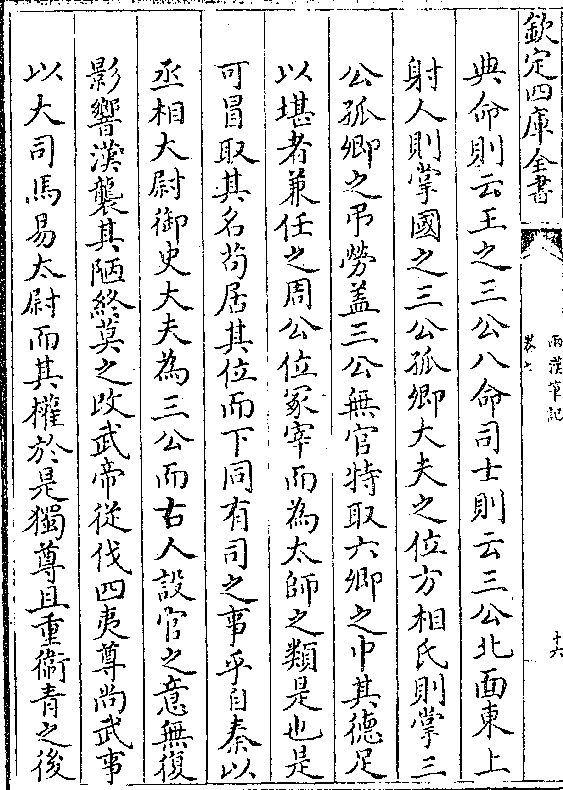 欽定四庫全書
兩漢筆記
卷七
十六
典命則云王之三公八命司士則云三公北面東上
射人則掌國之三公孤卿大夫之位方相氏則掌三
公孤卿之弔勞盖三公無官特取六卿之中其德足
以堪者兼任之周公位冡宰而為太師之類是也是
可冒取其名茍居其位而下同有司之事乎自秦以
丞相大尉御史大夫為三公而古人設官之意無復
影響漢襲其陋終莫之改武帝從伐四夷尊尚武事
以大司馬易太尉而其權於是獨尊且重衞青之後